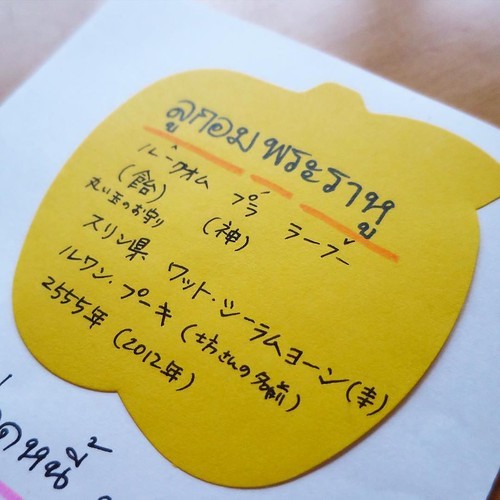 ลูกอม พระราหู
ルークオム プラ ラーフー
(飴) (神)
丸い玉のお守り
スリン県 ワット・シーラムヨーン(寺)
ルワン・プーキ (お坊さんの名前)
2555年 (2012年)